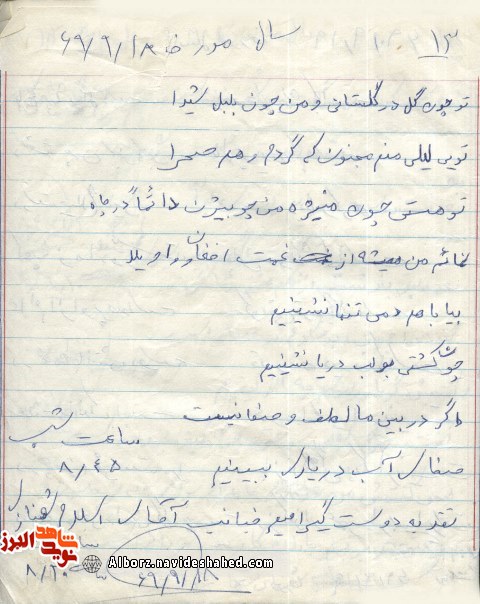 سال مورخه ۶۹/۹/۱۸
تو چون گل در گلستانی و من چون بلبل شیدا
تویی لیلی منم مجنون که گردم در صحرا
تو هستی چون منیژه من چو بیژن دائماً در چاه
نمائم من همیشه از غمت افغان و واویلا
بیا با هم دمی تنها نشینیم
چو کشتی بر لب دریا نشینیم
اگر در بین ما لطف و صفا نیست
ساعت شب
صفای آب دریا را ببینیم
۸/۴۵
تقدیم به دوست گرامیم آقای
ساعت ۸/۲۰
۶۹/۹/۱۸
نوید شاهد البرز
Alborz.navideshahed.com